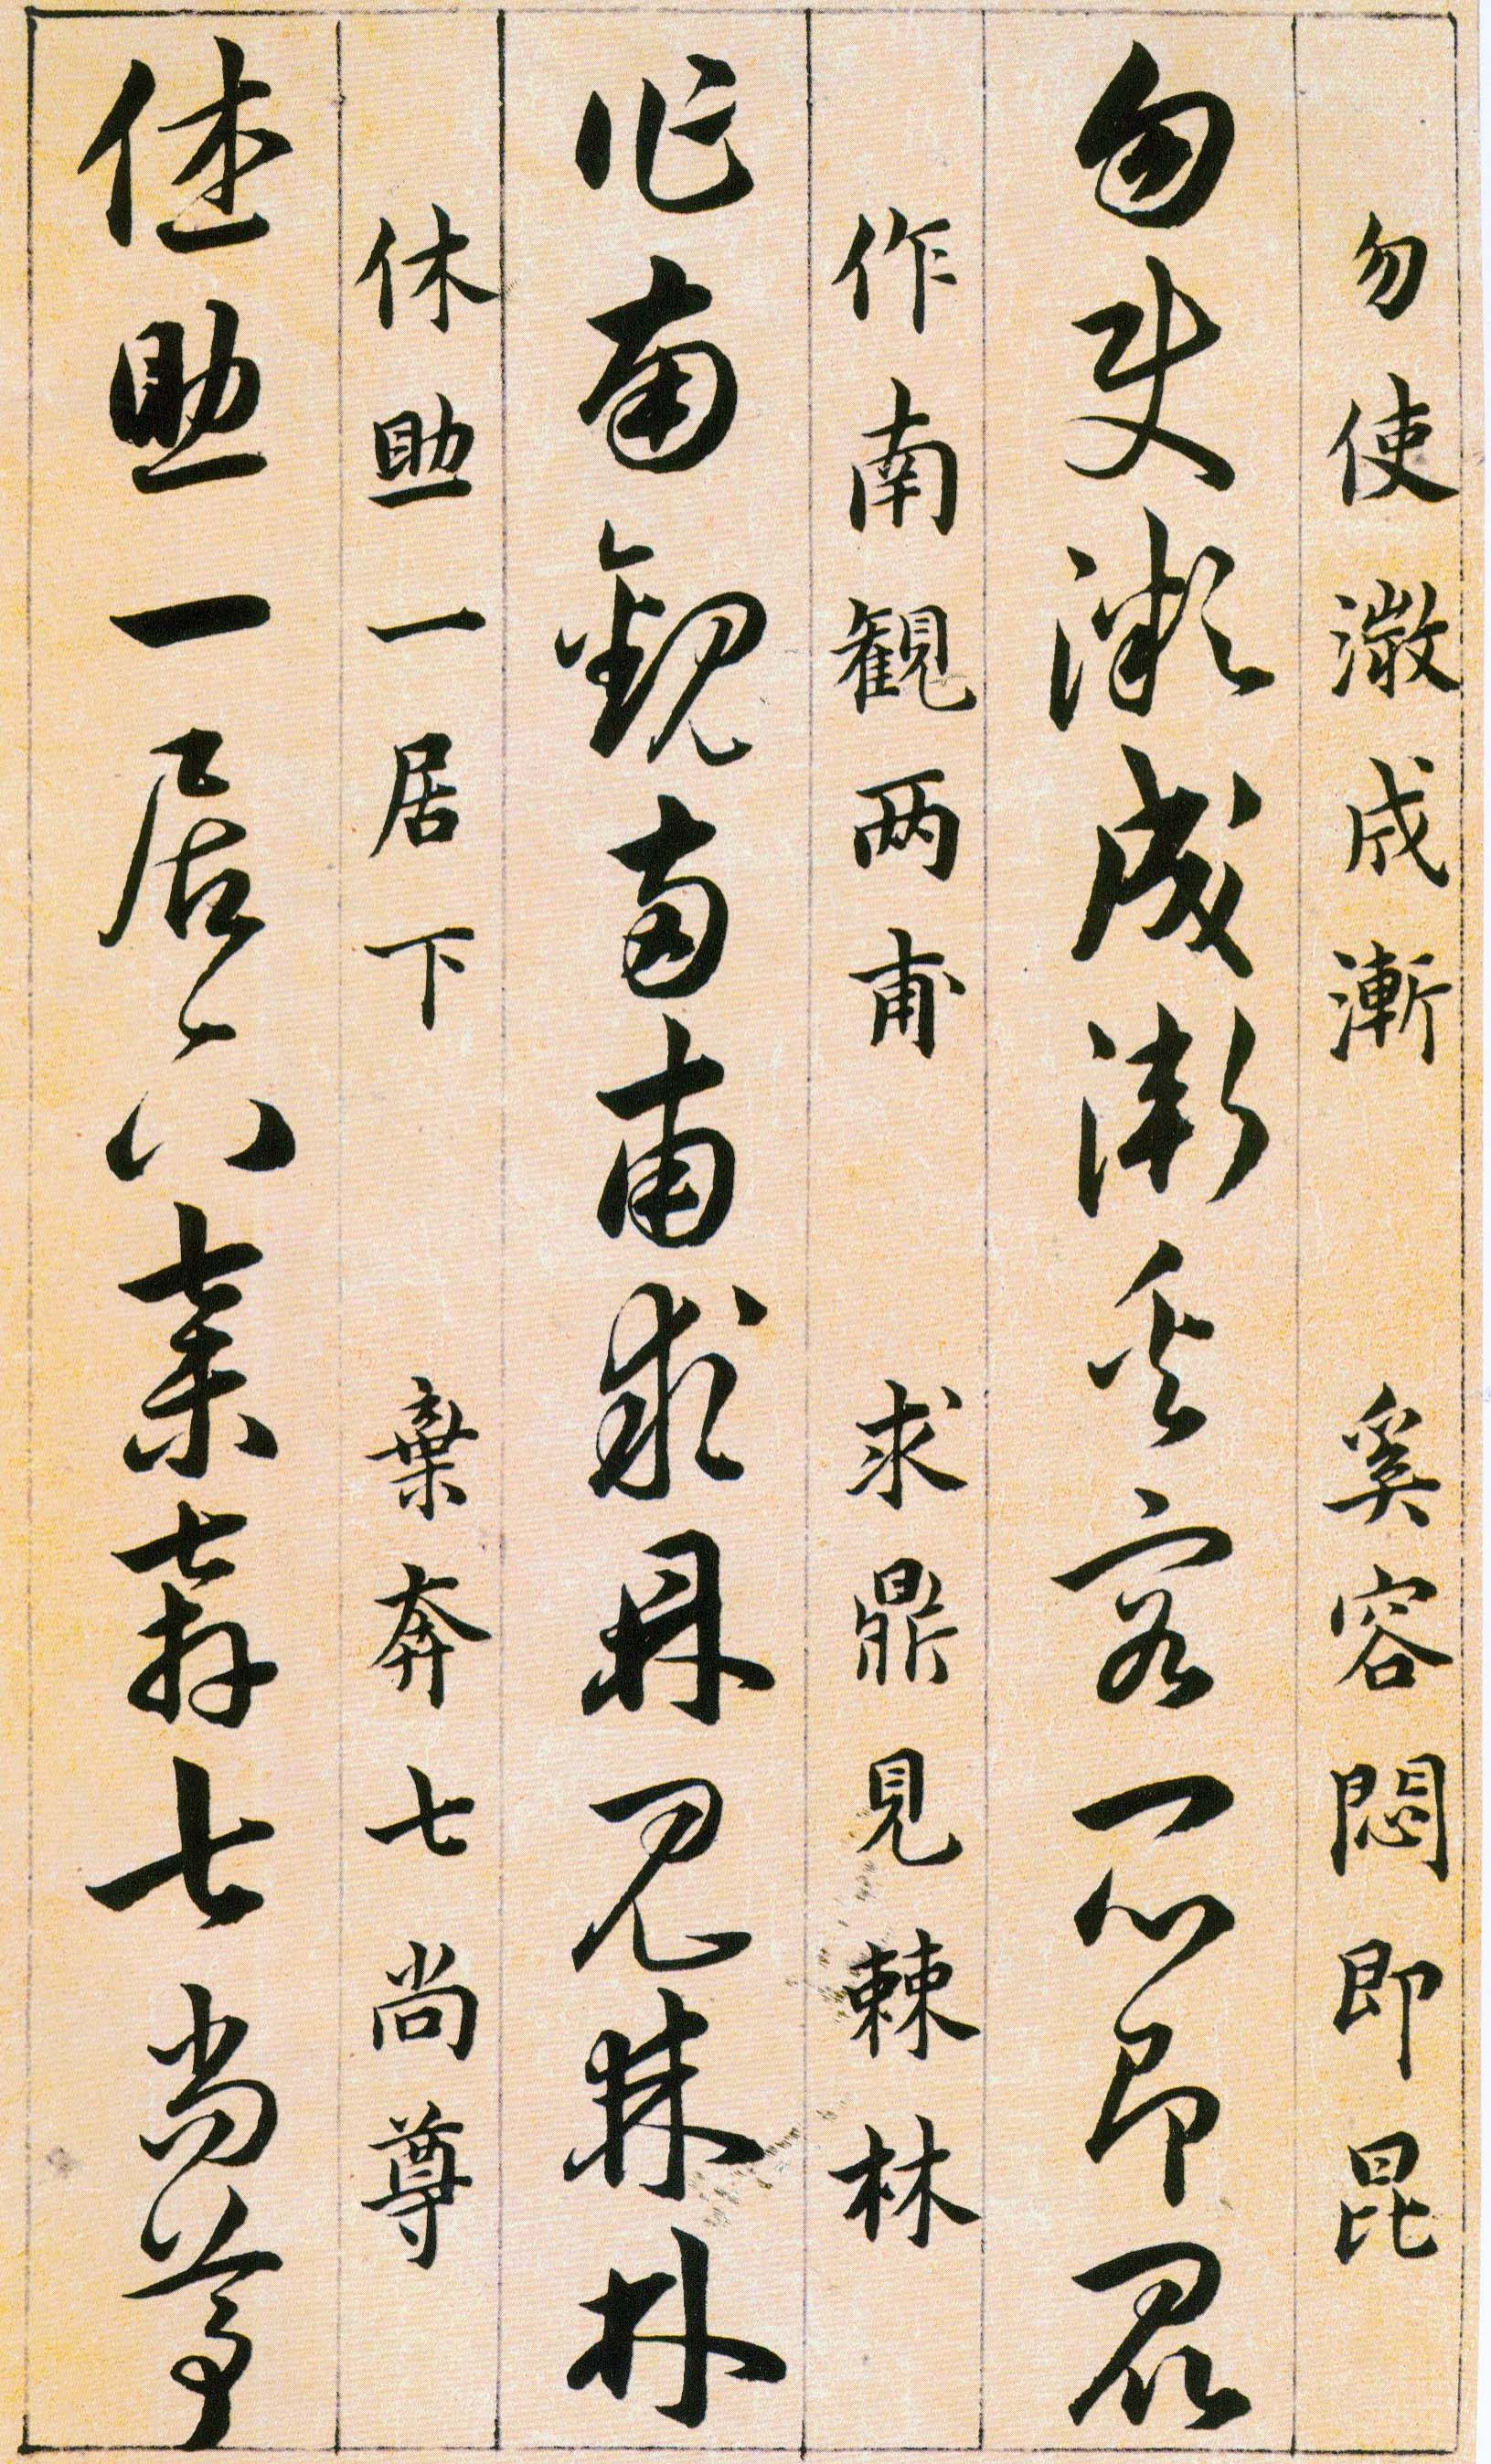 勿使澂成漸　奚容悶即昆
勿使澂成漸奚容悶即昆
作南観两甫　求鼎見棘林
作南観两甫求鼎見棘林
休助一居下　棄奔七尚尊
休助一居下棄奔七尚尊